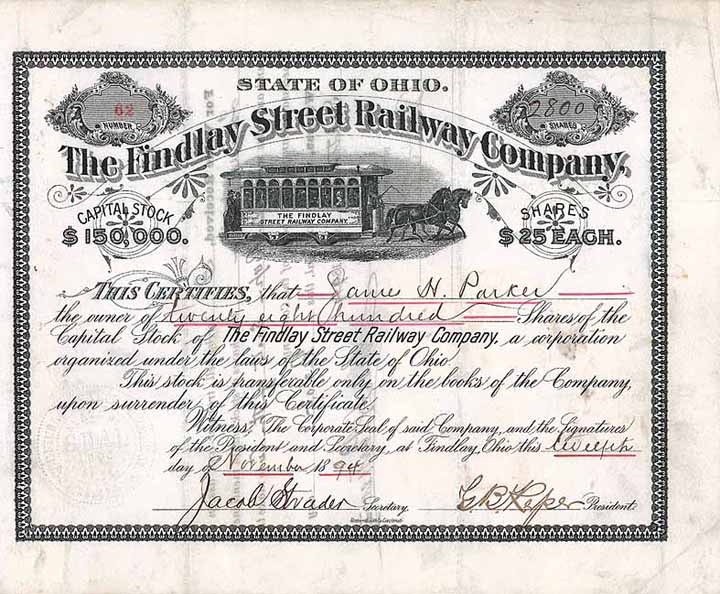 STATE OF OHIO.
62
NUMBER
2800
SHARES
The Findlay Street Railway Company.
CAPITAL STOCK
$150,000.
THE FINDLAY
STREET RAILWAY COMPANY.
SHARES
$25 EACH.
THIS CERTIFIES, that Jame H. Parker
the owner of twenty eight hundred Shares of the
Capital Stock of The Findlay Street Railway Company, a corporation
organized under the laws of the State of Ohio
This stock is transferable only on the books of the Company,
upon surrender of this Certificate.
Witness, The Corporate Seal of said Company, and the Signatures
of the President and Secretary, at Findlay, Ohio this twelfth
day of November 1894
Jacob Strader Secretary. President.